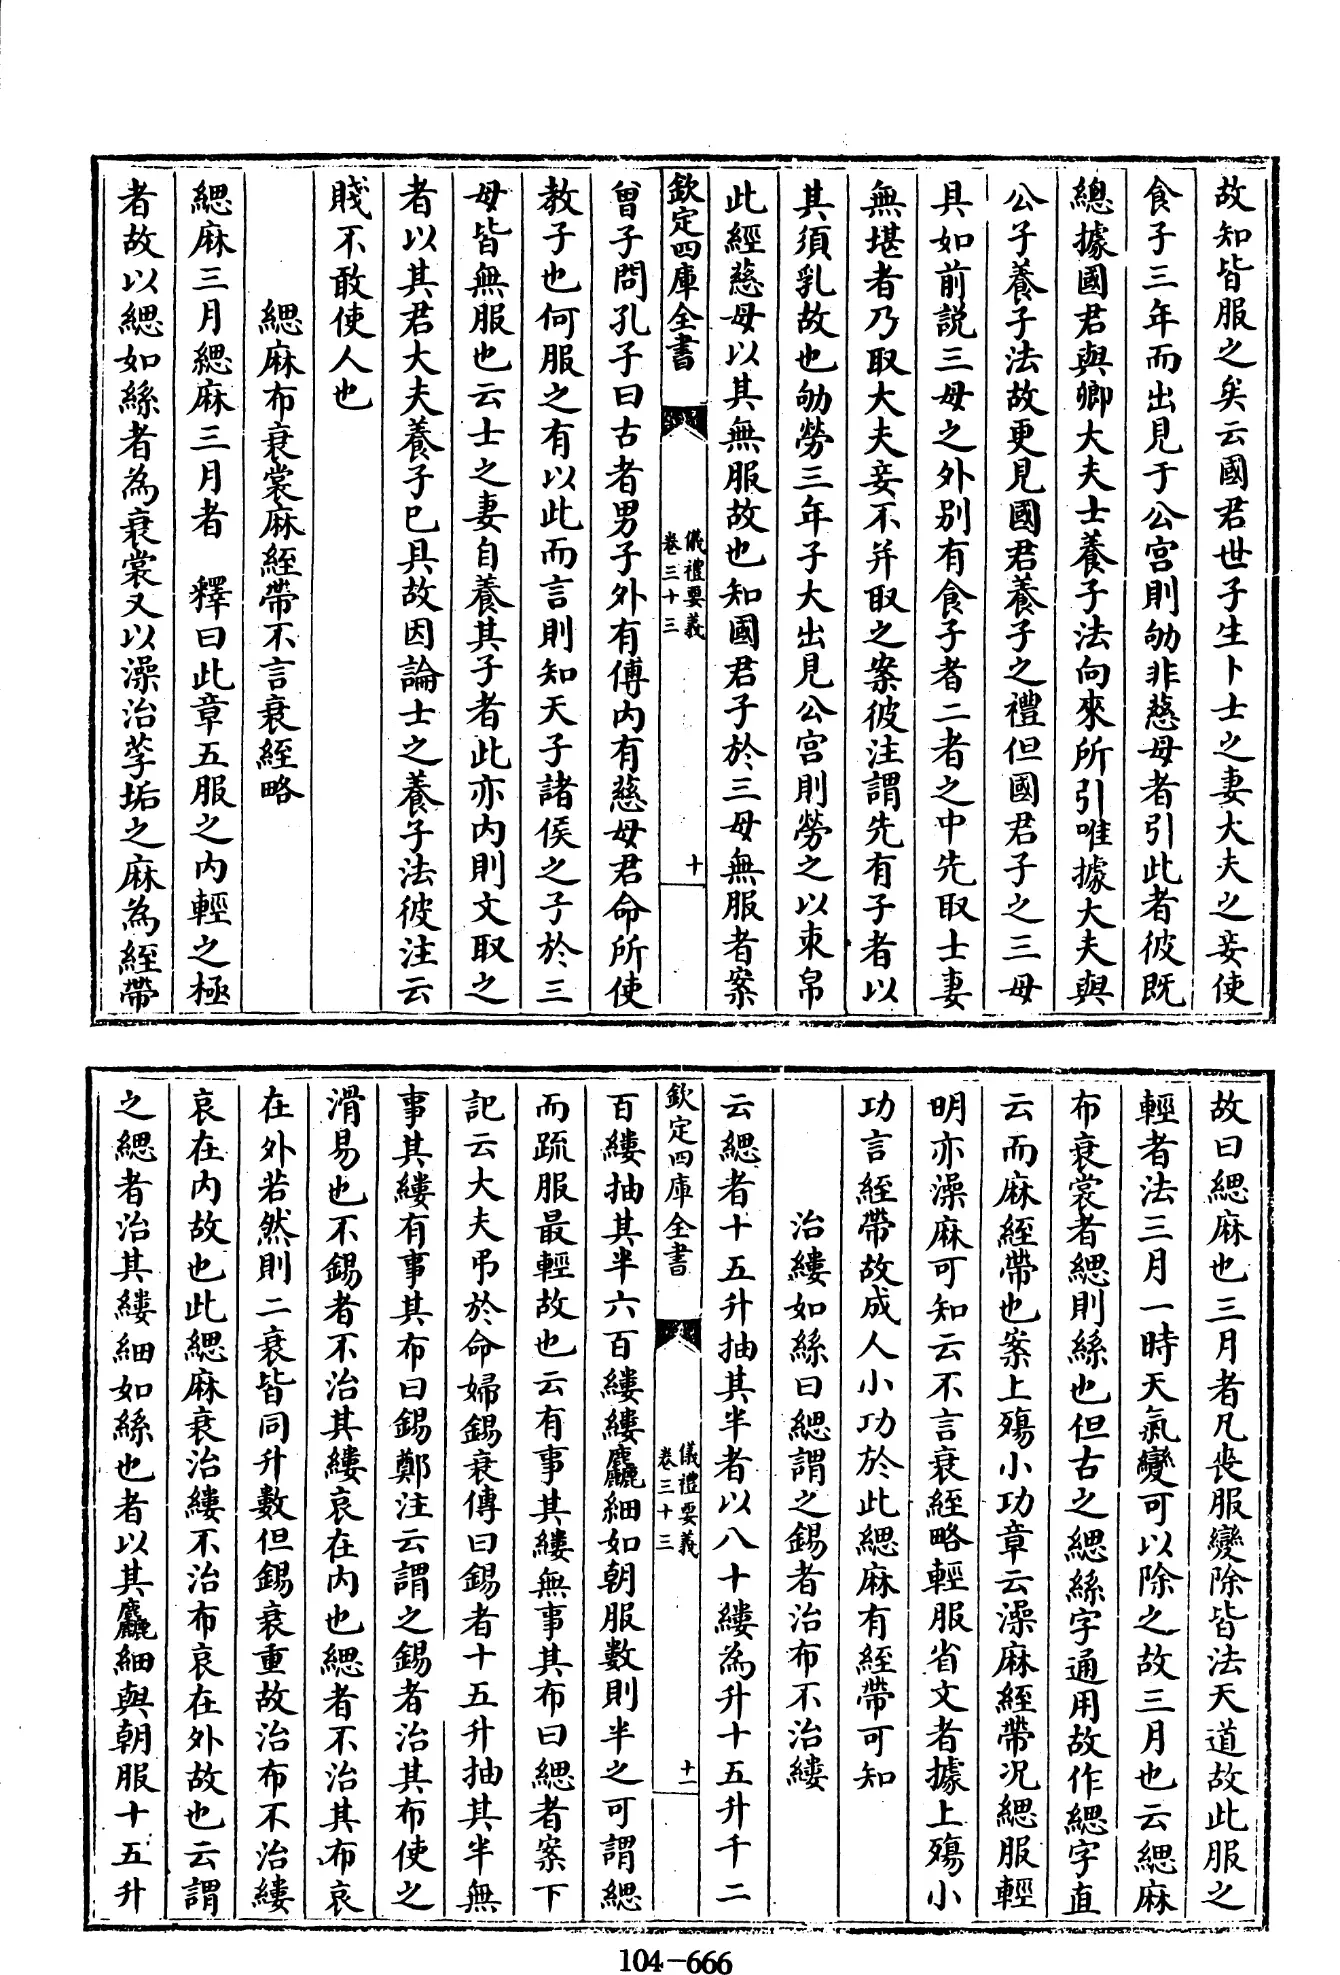 故知皆服之矣云國君世子生卜士之妻大夫之妾使
食子三年而出見于公宫則劬非慈母者引此者彼既
總據國君與卿大夫士養子法向來所引唯據大夫與
公子養子法故更見國君養子之禮但國君子之三母
具如前説三母之外别有食子者二者之中先取士妻
無堪者乃取大夫妾不并取之案彼注謂先有子者以
其須乳故也劬勞三年子大出見公宫則勞之以束帛
此經慈母以其無服故也知國君子於三母無服者案
欽定四庫全書
儀禮要義
卷三十三
十
曾子問孔子曰古者男子外有傅内有慈母君命所使
教子也何服之有以此而言則知天子諸侯之子於三
母皆無服也云士之妻自養其子者此亦内則文取之
者以其君大夫養子已具故因論士之養子法彼注云
賤不敢使人也
緦麻布衰裳麻絰帶不言衰絰略
緦麻三月緦麻三月者　釋曰此章五服之内輕之極
者故以緦如絲者為衰裳又以澡治莩垢之麻為絰帶
故曰緦麻也三月者凡喪服變除皆法天道故此服之
輕者法三月一時天氣變可以除之故三月也云緦麻
布衰裳者緦則絲也但古之緦絲字通用故作緦字直
云而麻絰帶也案上殤小功章云澡麻絰帶況緦服輕
明亦澡麻可知云不言衰絰略輕服省文者據上殤小
功言絰帶故成人小功於此緦麻有絰帶可知
治縷如絲曰緦謂之錫者治布不治縷
云緦者十五升抽其半者以八十縷為升十五升千二
欽定四庫全書
儀禮要義
卷三十三
十一
百縷抽其半六百縷縷麤細如朝服數則半之可謂緦
而疏服最輕故也云有事其縷無事其布曰緦者案下
記云大夫弔於命婦錫衰傳曰錫者十五升抽其半無
事其縷有事其布曰錫鄭注云謂之錫者治其布使之
滑易也不錫者不治其縷哀在内也緦者不治其布哀
在外若然則二衰皆同升數但錫衰重故治布不治縷
哀在内故也此緦麻衰治縷不治布哀在外故也云謂
之緦者治其縷細如絲也者以其麤細與朝服十五升
104-666